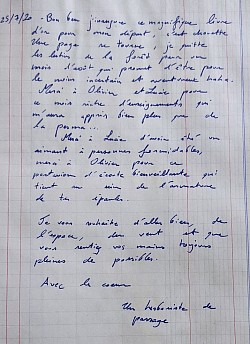 25/7/20 - Bon ben j'inaugure ce magnifique livre
d'or pour mon départ, c'est chouette
Une page se tourne, je quitte
les lutins de la forêt pour un
mois d'août en parcours d'être pour
le moins incertain et
Merci à Olivier et Laïa pour
ce mois riche d'enseignements qui
m'aura appris bien plus que de
la perma...
Merci à Laïa d'avoir été un
aimant à personnes formidables,
merci à Olivier pour ce
d'écoute bienveillante qui
tient au sein de l'
de tes épaules.
Je vous souhaite d'aller bien, de
l'espace, du vent et que
vous sentiez vos mains toujours
pleines de possibles.
Avec le coeur
Un herboriste de
passage